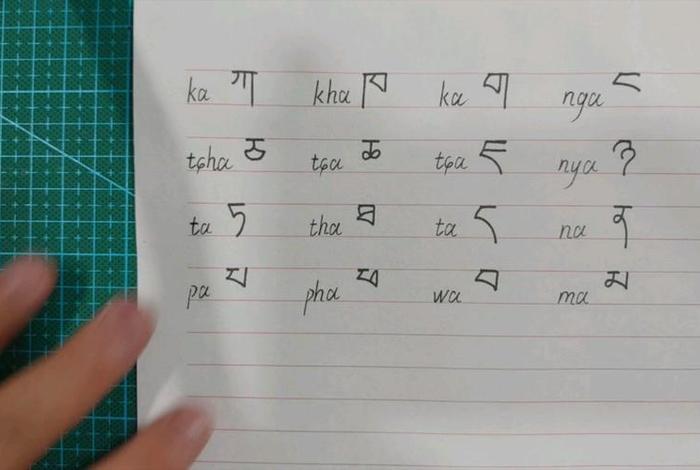 ka ཀ kha ཁ ka ག nga ང
tꞔha ཅ tꞔa ཆ tꞔa ཇ nya ཉ
ta ཏ tha ཐ ta ད na ན
pa པ pha ཕ wa བ ma མ